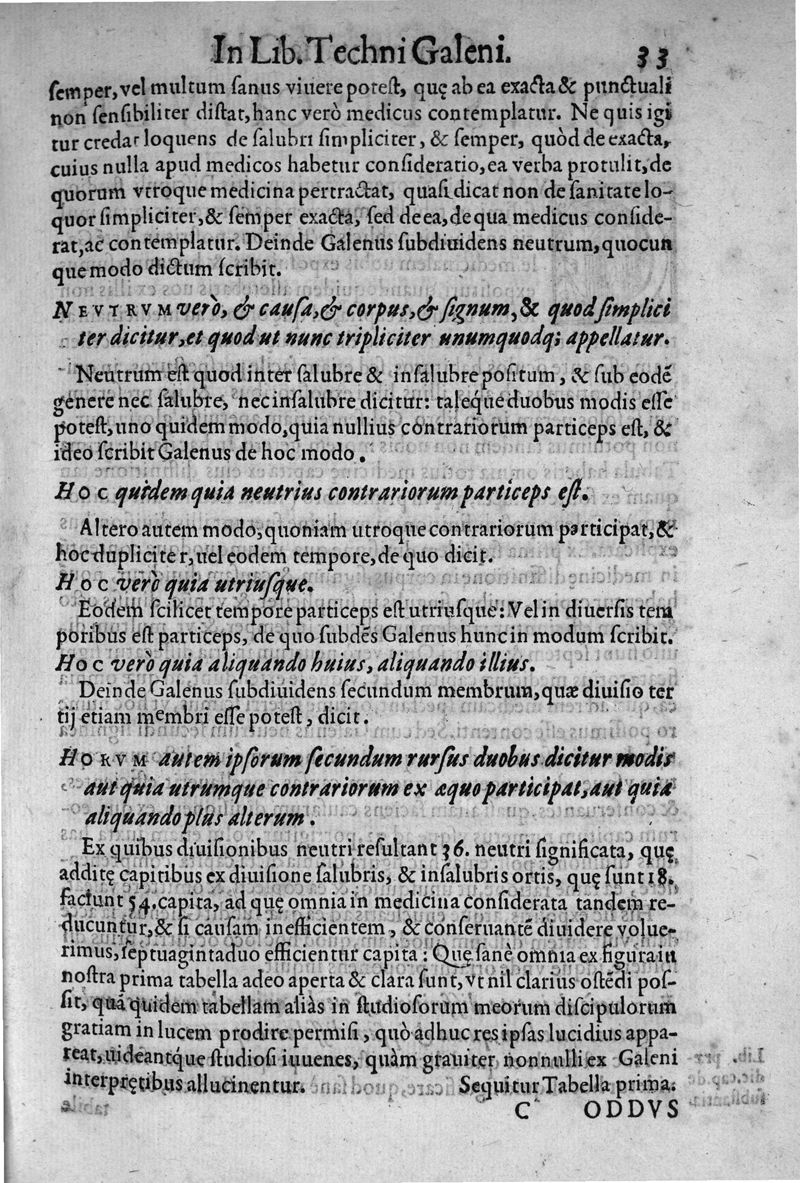 In Lib. Techni Galeni. 33
semper, vel multum sanus viuere potest, quę ab ea exacta & punctuali
non sensibiliter distat, hanc verò medicus contemplatur. Ne quis igi
tur credat loquens de salubri simpliciter, & semper, quòd de exacta,
cuius nulla apud medicos habetur consideratio, ea verba protulit, de
quorum vtroque medicina pertractat, quasi dicat non de sanitate lo-
quor simpliciter, & semper exacta, sed de ea, de qua medicus conside-
rat, ac contemplatur. Deinde Galenus subdiuidens neutrum, quocun
que modo dictum scribit.
NEVTRVM verò, & causa, & corpus, & signum, & quod simplici
ter dicitur, et quod ut nunc tripliciter unumquodq; appellatur.
Neutrum est quod inter salubre & insalubre positum, & sub eodē
genere nec salubre, nec insalubre dicitur: taleque duobus modis esse
potest, uno quidem modo, quia nullius contrariorum particeps est, &
ideo scribit Galenus de hoc modo.
Hoc quidem quia neutrius contrariorum particeps est.
Altero autem modo, quoniam utroque contrariorum participat, &
hoc dupliciter, uel eodem tempore, de quo dicit.
Hoc verò quia utriusque.
Eodem scilicet tempore particeps est utriusque: Vel in diuersis tem
poribus est particeps, de quo subdēs Galenus hunc in modum scribit.
Hoc verò quia aliquando huius, aliquando illius.
Deinde Galenus subdiuidens secundum membrum, quæ diuisio ter
tij etiam membri esse potest, dicit.
HORVM autem ipsorum secundum rursus duobus dicitur modis
aut quia utrumque contrariorum ex æquo participat, aut quia
aliquando plus alterum.
Ex quibus diuisionibus neutri resultant 36. neutri significata, quę
additę capitibus ex diuisione salubris, & insalubris ortis, quę sunt 18.
faciunt 54. capita, ad quę omnia in medicina considerata tandem re-
ducuntur, & si causam inefficientem, & conseruantē diuidere volue-
rimus, septuagintaduo efficientur capita: Quę sanè omnia ex figura in
nostra prima tabella adeo aperta & clara sunt, vt nil clarius ostēdi pos-
sit, quā quidem tabellam aliàs in studiosorum meorum discipulorum
gratiam in lucem prodire permisi, quò adhuc res ipsas lucidius appa-
reat, uideantque studiosi iuuenes, quàm grauiter nonnulli ex Galeni
interprętibus allucinentur. Sequitur Tabella prima.
C ODDVS